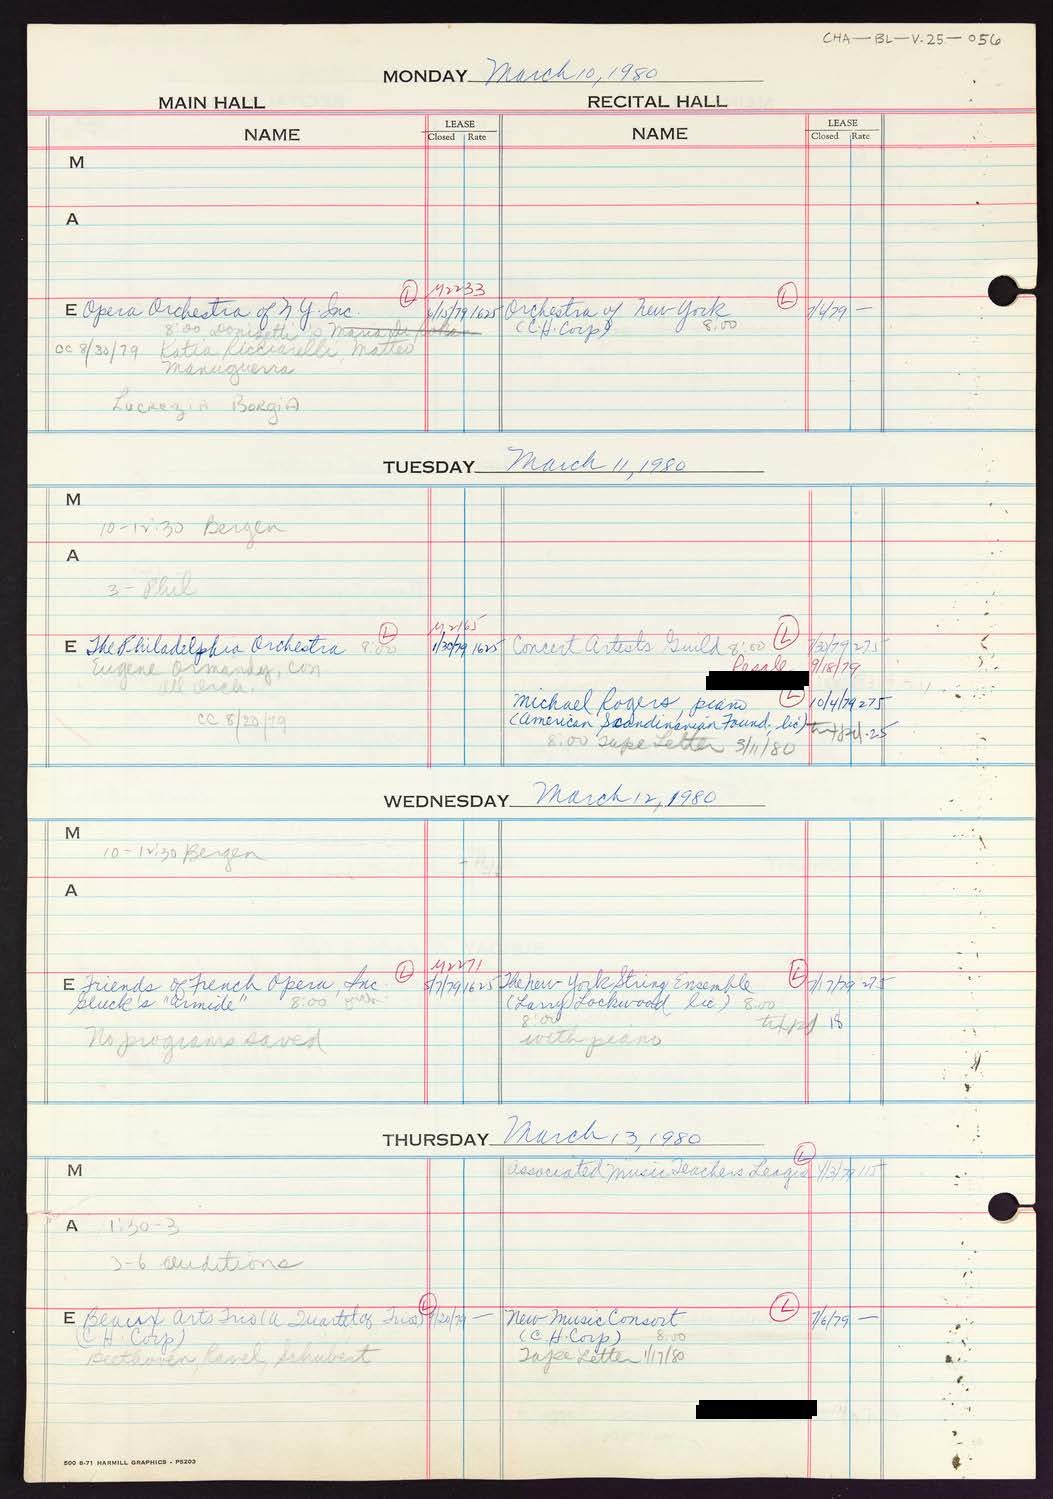 CHA-BL-V.25-056
MONDAY March 10, 1980
MAIN HALL RECITAL HALL
NAME LEASE Closed Rate NAME LEASE Closed Rate
M
A
L M2233 L
E Opera Orchestra of N.Y. Inc. 6/15/79 1625 Orchestra of New York 7/4/79 -
8:00 Donizetti's Maria de (C.H. Corp) 8:00
CC 8/30/79 Katia Ricciarelli, Matteo
Manuguerra
Lucrezia Borgia
TUESDAY March 11, 1980
M
10-12:30 Bergen
A
3- Phil
L M2165 L
E The Philadelphia Orchestra 8:00 1/30/79 1625 Concert Artists Guild 8:00 7/30/79 275
Eugene Ormandy, con 9/18/79
All Orch.
Michael Rogers, piano L 10/4/79 275
CC 8/20/79 (American Scandinavian Found, lic)
8:00 Tape Letter 3/11/80
WEDNESDAY March 12, 1980
M
10-12:30 Bergen
A
L M2271 L
E Friends of French Opera, Inc 5/7/79 1625 The New York String Ensemble 7/17/79 275
Gluck's "Armide" 8:00 (Larry Lockwood lic) 8:00
8:00 18
No programs saved with piano
THURSDAY March 13, 1980
L
M Associated Music Teachers League 4/3/79 115
A 1:30-3
3-6 auditions
L L
E Beaux Arts Trio (A Quartet of Trios) 9/20/79 - New Music Consort 7/6/79 -
(C.H. Corp) (C.H. Corp) 8:00
Beethoven, Ravel, Schubert Tape Letter 1/17/80
500 8-71 HARMILL GRAPHICS - P5203